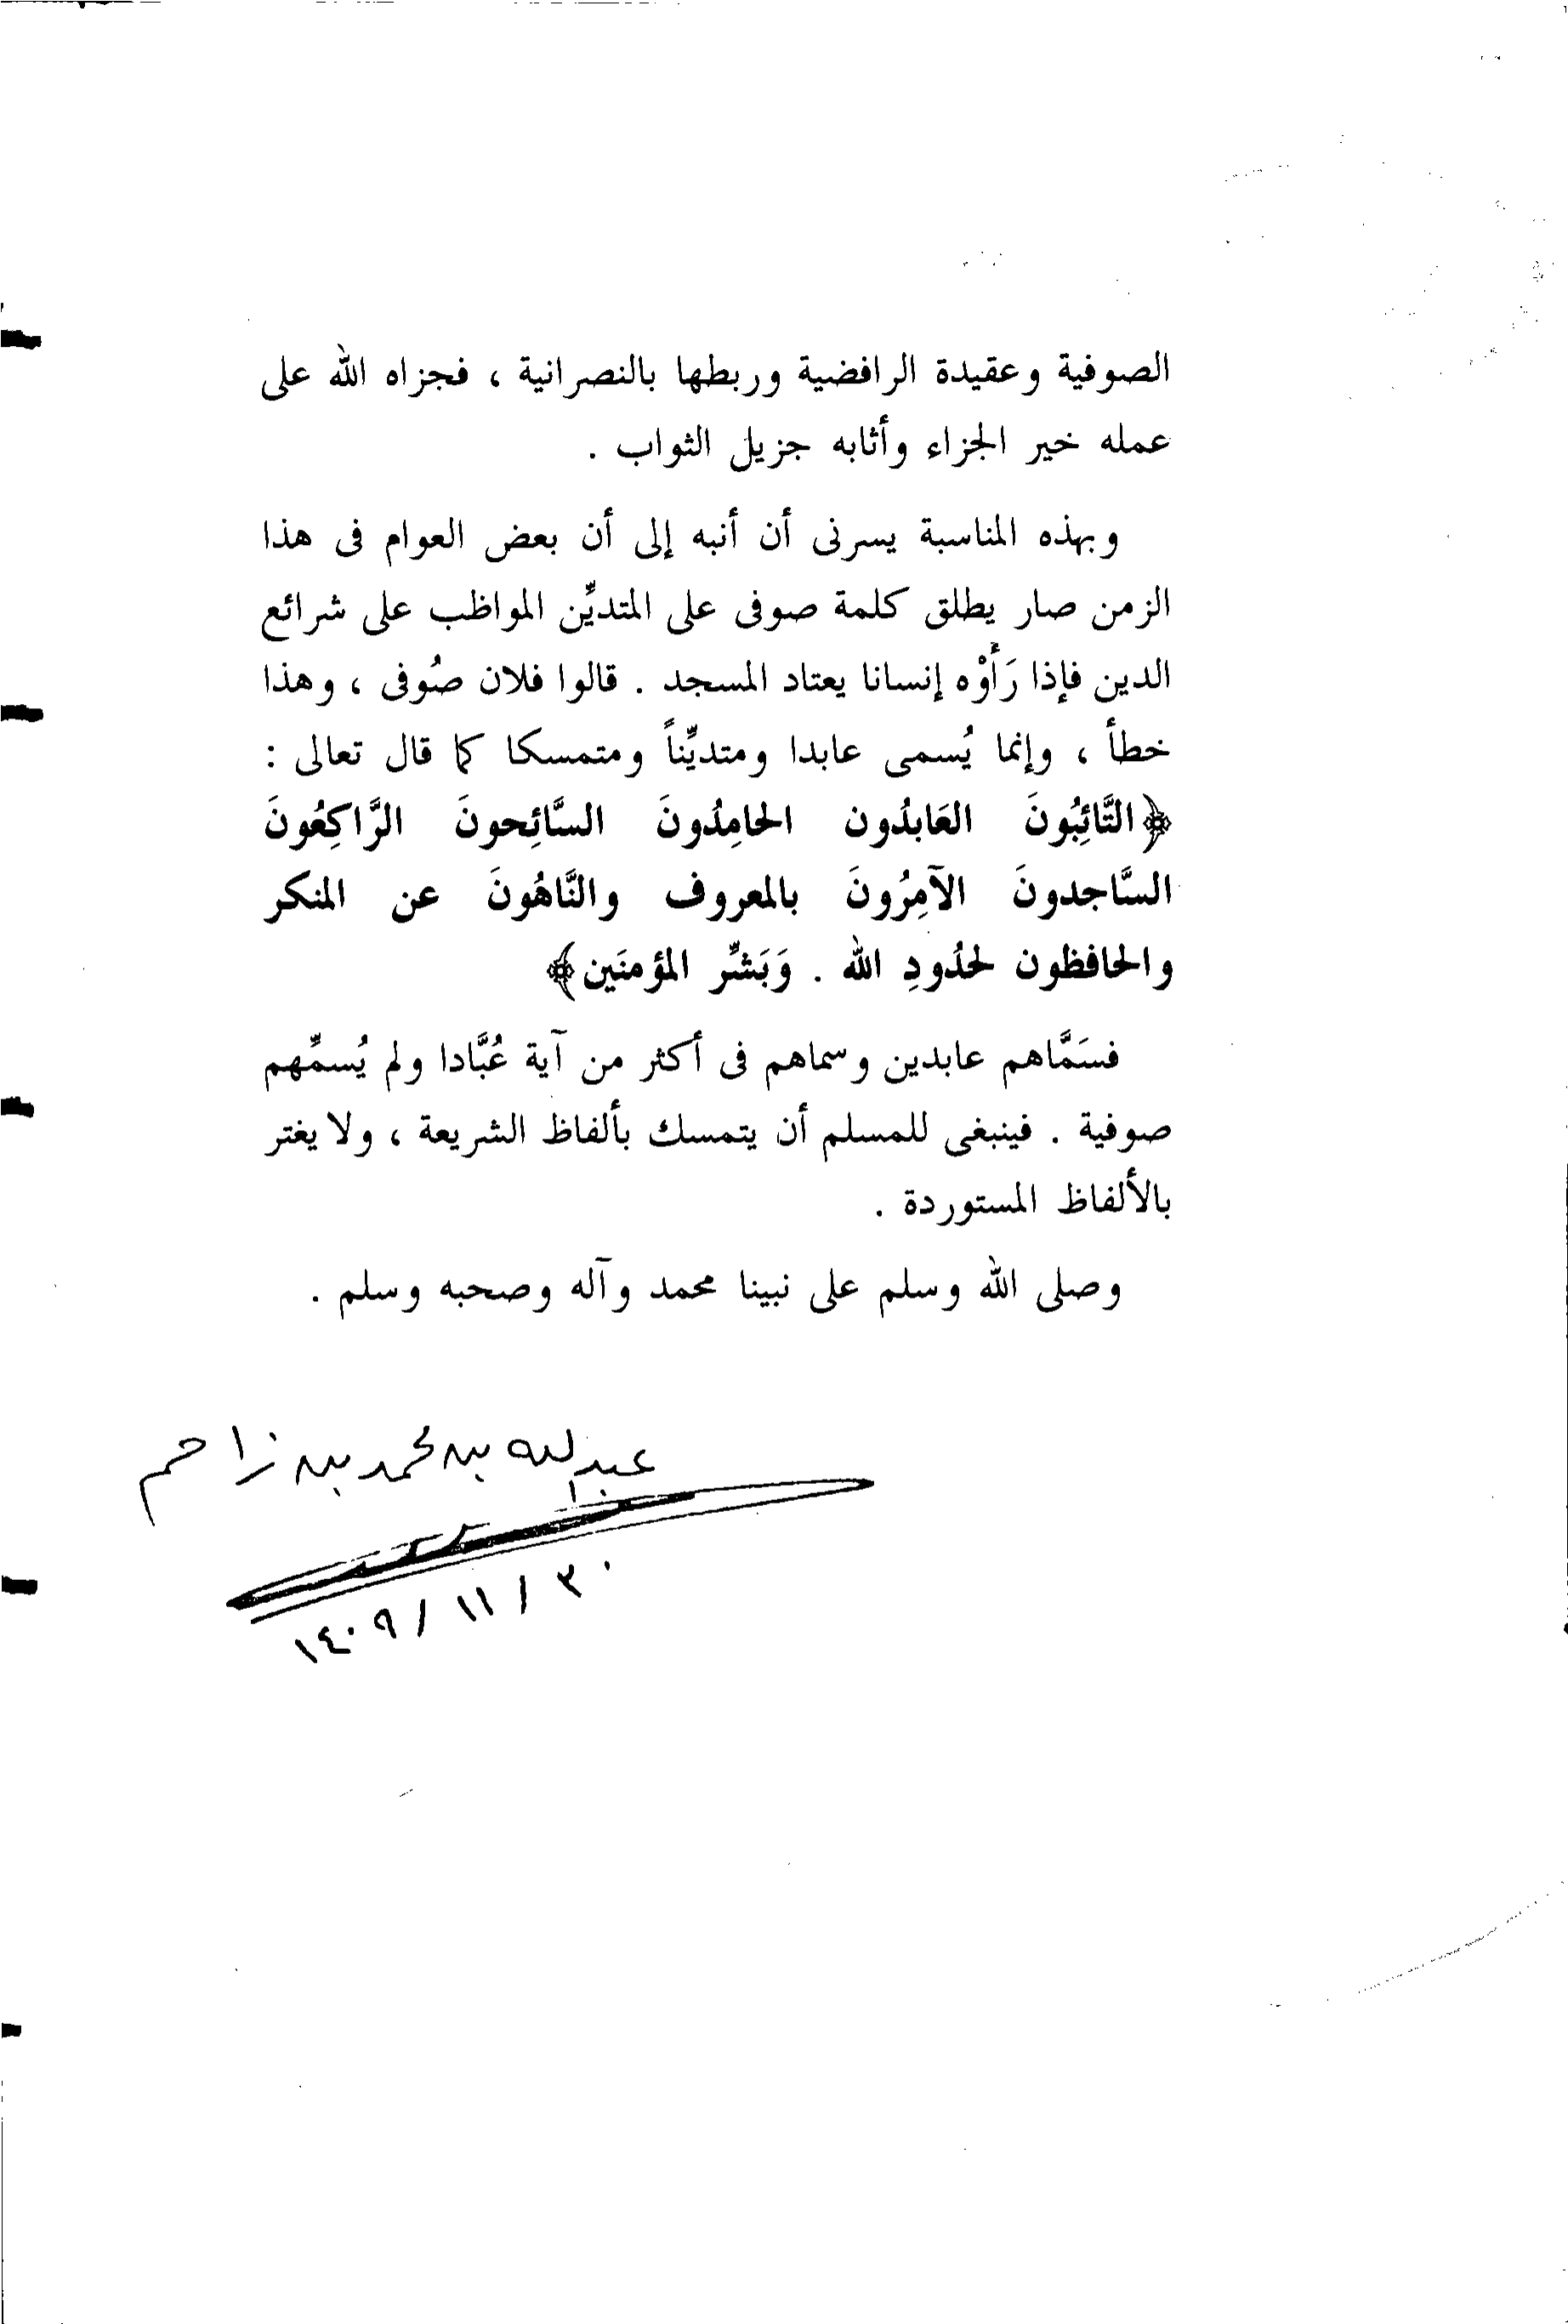 الصوفية وعقيدة الرافضية وربطها بالنصرانية ، فجزاه الله على
عمله خير الجزاء وأثابه جزيل الثواب .
وبهذه المناسبة يسرنى أن أنبه إلى أن بعض العوام فى هذا
الزمن صار يطلق كلمة صوفى على المتديِّن المواظب على شرائع
الدين فإذا رَأَوْه إنسانا يعتاد المسجد . قالوا فلان صُوفى ، وهذا
خطأ ، وإنما يُسمى عابدا ومتديِّناً ومتمسكا كما قال تعالى :
﴿التَّائِبُونَ العَابدُون الحَامِدُونَ السَّائِحونَ الرَّاكِعُونَ
السَّاجدونَ الآمِرُونَ بالمعروف والنَّاهُونَ عن المنكر
والحافظون لحدُودِ الله . وَبَشِّر المؤمنَين﴾
فسَمَّاهم عابدين وسماهم فى أكثر من آية عُبَّادا ولم يُسمِّهم
صوفية . فينبغى للمسلم أن يتمسك بألفاظ الشريعة ، ولا يغتر
بالألفاظ المستوردة .
وصلى الله وسلم على نبينا محمد وآله وصحبه وسلم .
عبدالله بن محمد بن زاحم
٣٠ / ١١ / ١٤٠٩